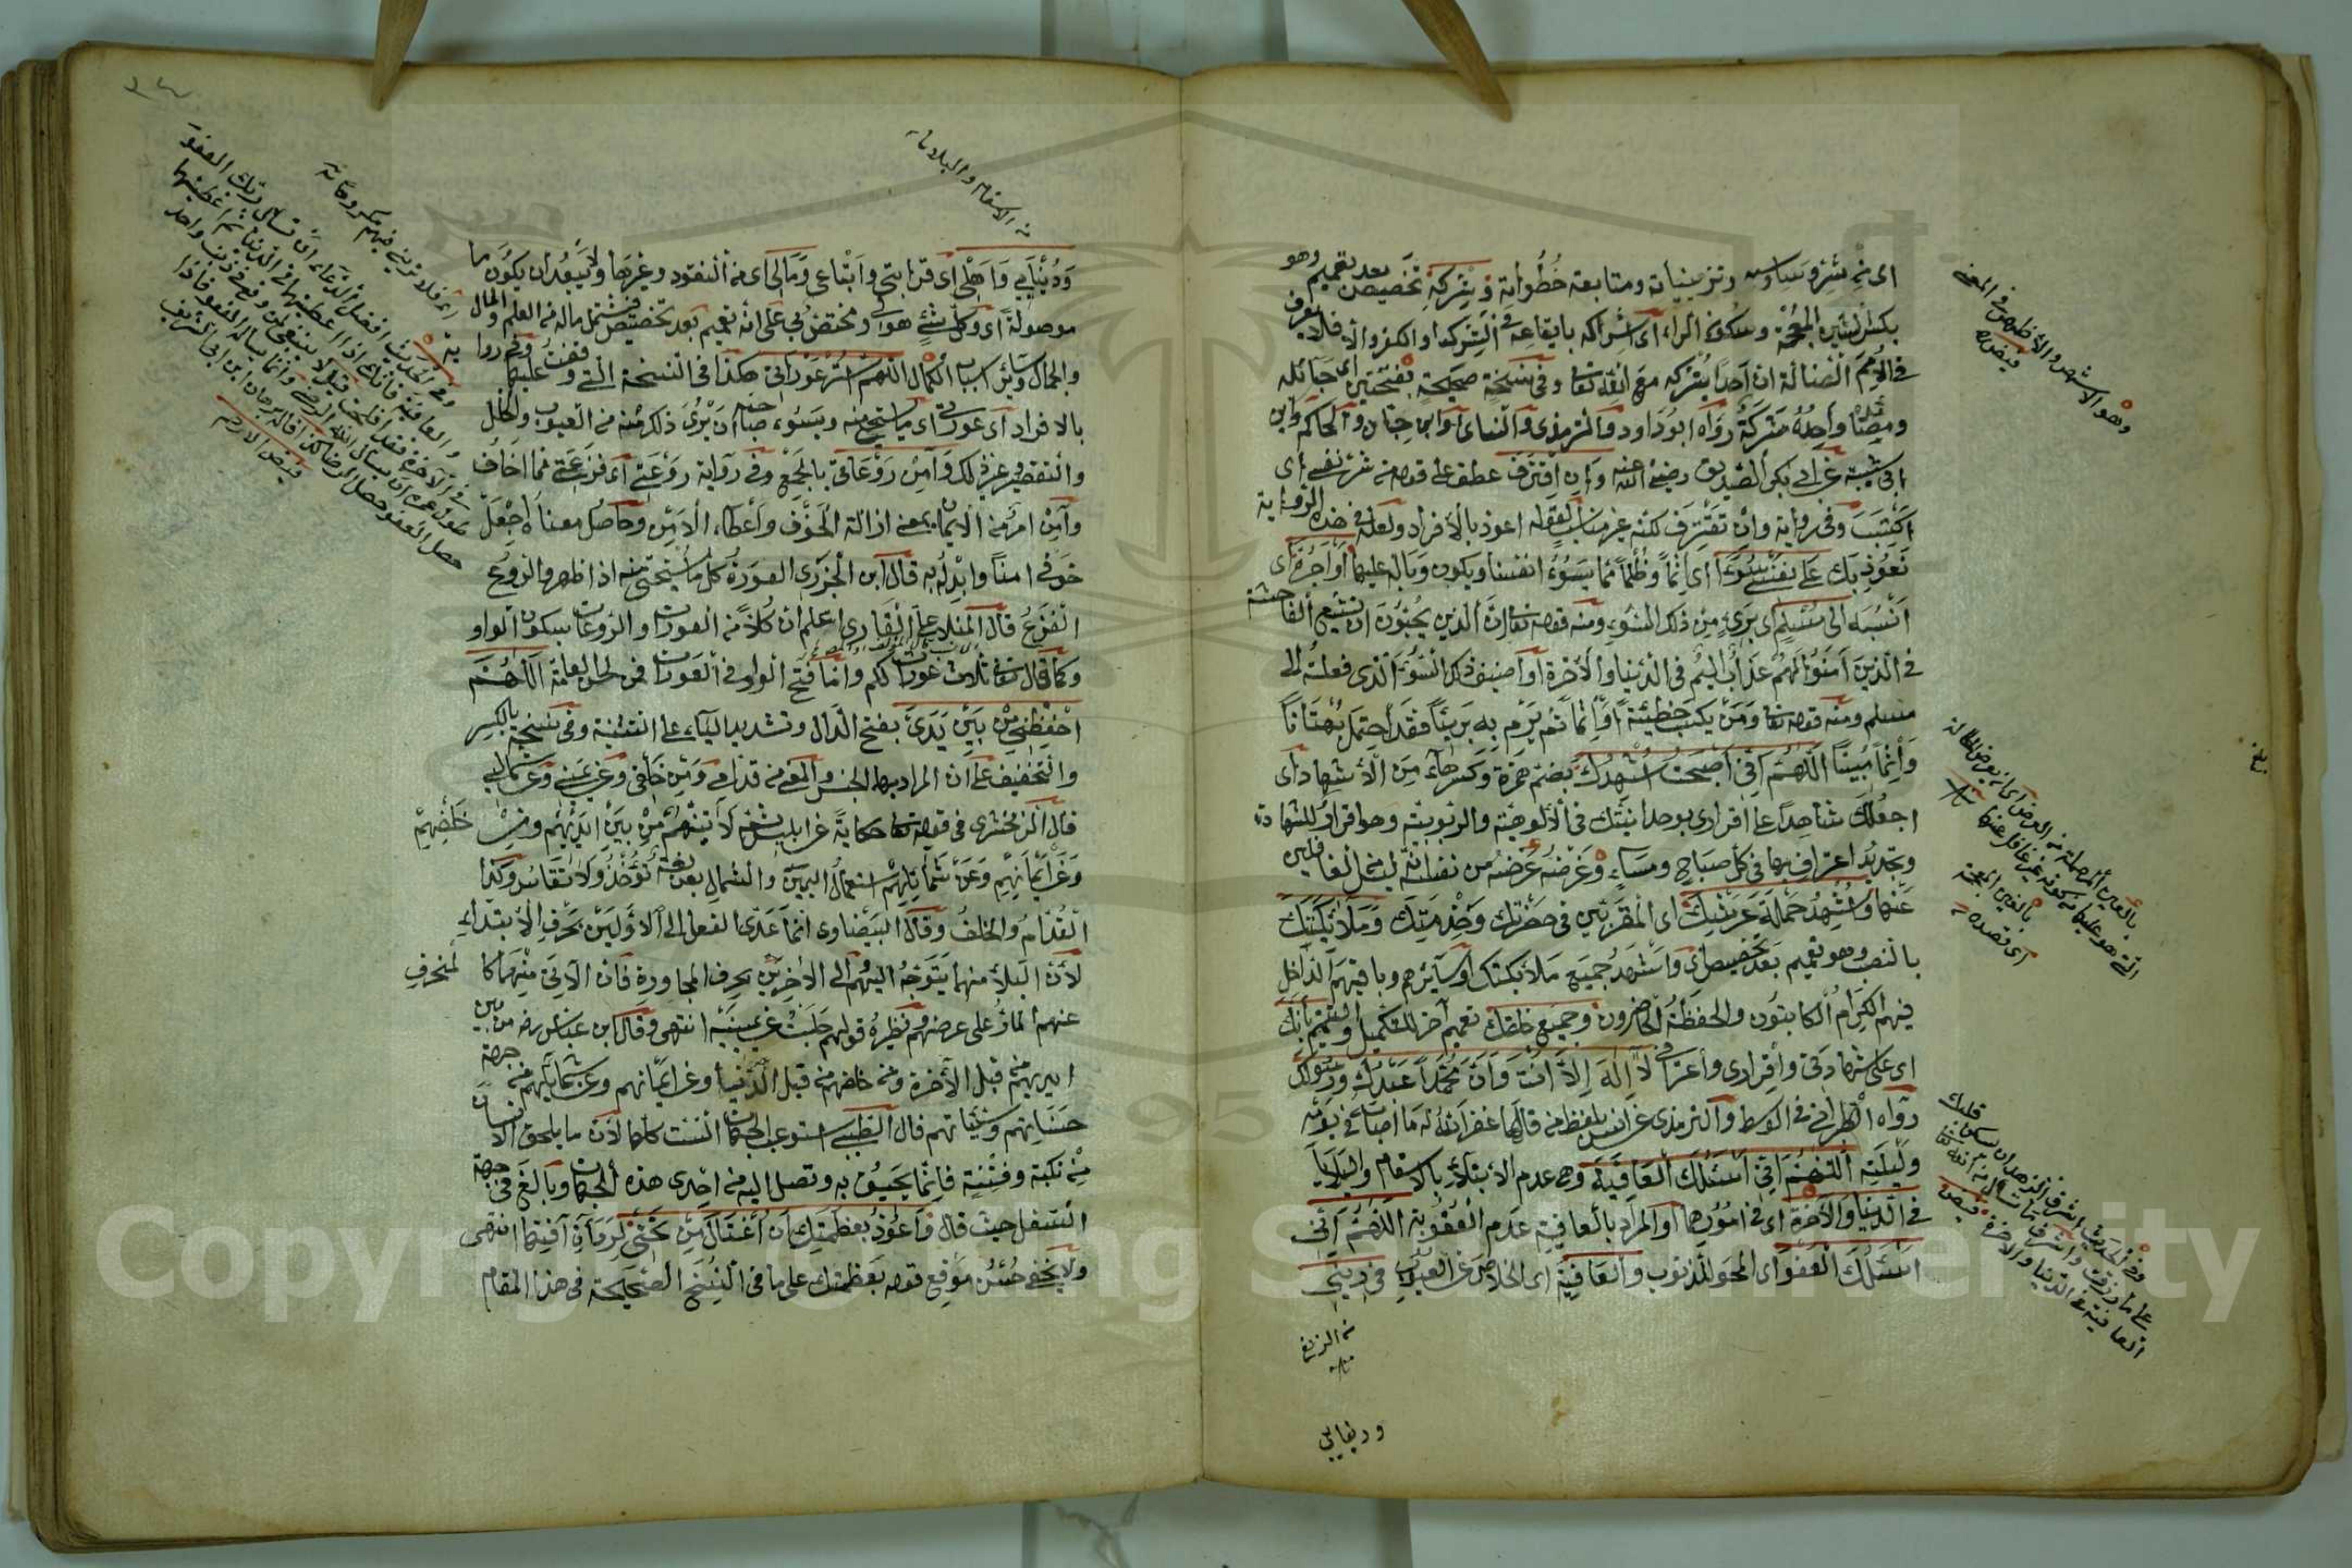 اى من شر وساوسه وتزييناته ومتابعة خطواته وَشِرْكِهِ تخصيص بعد تعميم وهو
بكسر الشين المعجمة وسكون الراء اى اشراكه بايقاعه فى الشرك او الكفر والا فلا يعرف
فى الامم الضالة ان احدا يشركه مع الله تعالى وفى نسخة صحيحة بفتحتين اى حبائله
ومصائده واحده شركة رواه ابو داود والترمذى والنساى وابن حبان والحاكم وابن
ابى شيبة عن ابى بكر الصديق رضى الله عنه وَاَنْ اَقْتَرِفَ عطف على قوله من شر نفسى اى
اكتسب وفى رواية وان نقترف لكنه غير مناسب لقوله اعوذ بالافراد ولعله فى هذه الرواية
نعوذ بك عَلَى نَفْسِى سُوءًا اى اثما وظلما مما يسوء انفسنا ويكون وباله عليها اَوْ اَجُرَّهُ اى
انسبه اِلَى مُسْلِمٍ اى برىء من ذلك السوء ومنه قوله تعالى ان الذين يحبون ان تشيع الفاحشة
فى الذين آمنوا لهم عذاب اليم فى الدنيا والآخرة او اضيف ذلك السوء الذى فعلته الى
مسلم ومنه قوله تعالى ومن يكسب خطيئة او اثما ثم يرم به بريئا فقد احتمل بهتانا
واثما مبينا اَللّٰهُمَّ اِنِّى اَصْبَحْتُ اُشْهِدُكَ بضم همزة وكسر هاء من الاشهاد اى
اجعلك شاهدا على اقرارى بوحدانيتك فى الالوهية والربوبية وهو اقرار للشهادة
وتجديد اعترافى بها فى كل صباح ومساء وغرضه عرضه من نفسه انه ليس من الغافلين
عنها وَاُشْهِدُ حَمَلَةَ عَرْشِكَ اى المقربين فى حضرتك وخدمتك وَمَلَائِكَتَكَ
بالنصب وهو تعميم بعد تخصيص اى واشهد جميع ملائكتك او سائرهم وباقيهم الداخل
فيهم الكرام الكاتبون والحفظة الحاضرون وَجَمِيعَ خَلْقِكَ تعميم آخر للتكميل والتتميم بِاَنَّكَ
اى على شهادتى واقرارى واعترافى لَا اِلٰهَ اِلَّا اَنْتَ وَاَنَّ مُحَمَّدًا عَبْدُكَ وَرَسُولُكَ
رواه الطبرانى فى الاوسط والترمذى عن انس بلفظ من قالها غفر الله له ما اصاب فى يومه
وليلته اَللّٰهُمَّ اِنِّى اَسْئَلُكَ الْعَافِيَةَ وهى عدم الابتلاء بالاسقام والبلايا
فِى الدُّنْيَا وَالْآخِرَةِ اى فى امورها او المراد بالعافية عدم العقوبة اَللّٰهُمَّ اِنِّى
اَسْئَلُكَ الْعَفْوَ اى المحو للذنوب وَالْعَافِيَةَ اى الخلاص عن العيوب فِى دِينِى
ودنيايى
وَدُنْيَايِى وَاَهْلِى اى قرابتى واتباعى وَمَالِى اى من النقود وغيرها ولا يبعد ان يكون ما
موصولة اى وكل شىء هو لى ومختص بى على انه تعميم بعد تخصيص فيشتمل ماله من العلم والمال
والجمال وسائر اسباب الكمال اَللّٰهُمَّ اسْتُرْ عَوْرَاتِى هكذا فى النسخة التى وقفنا عليها
بالافراد اى عورتى اى ما يستحى منه ويسوء صاحبه ان يرى ذلك منه من العيوب والخلل
والتقصير وغير ذلك وَآمِنْ رَوْعَاتِى بالجمع وفى رواية روعتى اى فزعتى مما اخاف
وآمن امر من الايمان بمعنى ازالة الخوف واعطاء الامن وحاصل معناه اجعل
خوفى امنا وابدله به قال ابن الجزرى العورة كل ما يستحى منه اذا ظهر والروع
الفزع قال المنلا على القارى اعلم ان كلا من العورات والروعات بسكون الواو
وكما قال تعالى ثلاث عورات لكم وانما فتح الواو فى العورات فمن لحن العامة اَللّٰهُمَّ
احْفَظْنِى مِنْ بَيْنِ يَدَىَّ بفتح الدال وتشديد الياء على التثنية وفى نسخة بالكسر
والتخفيف على ان المراد بها الجنس والمعنى من قدامى وَمِنْ خَلْفِى وَعَنْ يَمِينِى وَعَنْ شِمَالِى
قال الزمخشرى فى قوله تعالى حكاية عن ابليس لآتينهم من بين ايديهم ومن خلفهم
وعن ايمانهم وعن شمائلهم استعمال اليمين والشمال بعن لغة تؤخذ ولا تقاس وكذا
القدام والخلف وقال البيضاوى انما عدى الفعل الى الاولين بحرف الابتداء
لان البلاء منهما يتوجه اليهم والى الاخرين بحرف المجاورة فان الآتى منهما كالمنحرف
عنهم المار على عرضهم ونظيره قولهم جلست عن يمينه انتهى وقال ابن عباس رضه من بين
ايديهم من قبل الآخرة ومن خلفهم من قبل الدنيا وعن ايمانهم وعن شمائلهم من جهة
حسناتهم وسيئاتهم قال الطيبى استوعب الجهات الست كلها لان ما يلحق الانسان
من نكبة وفتنة فانما يحيق به وتصل اليه من احدى هذه الجهات وبالغ فى جهة
السفل حيث قال وَاَعُوذُ بِعَظَمَتِكَ اَنْ اُغْتَالَ مِنْ تَحْتِى لرداءة آفتها انتهى
ولا يخفى حسن موقع قوله بعظمتك على ما فى النسخ الصحيحة فى هذا المقام
من الاسقام والبلايا
وهو الاشهر والاظهر فى المعنى
فيض
بالغين المعجمة
اى قصده
وفى الحديث
العافية فى الدنيا والآخرة
Copyright © King Saud University